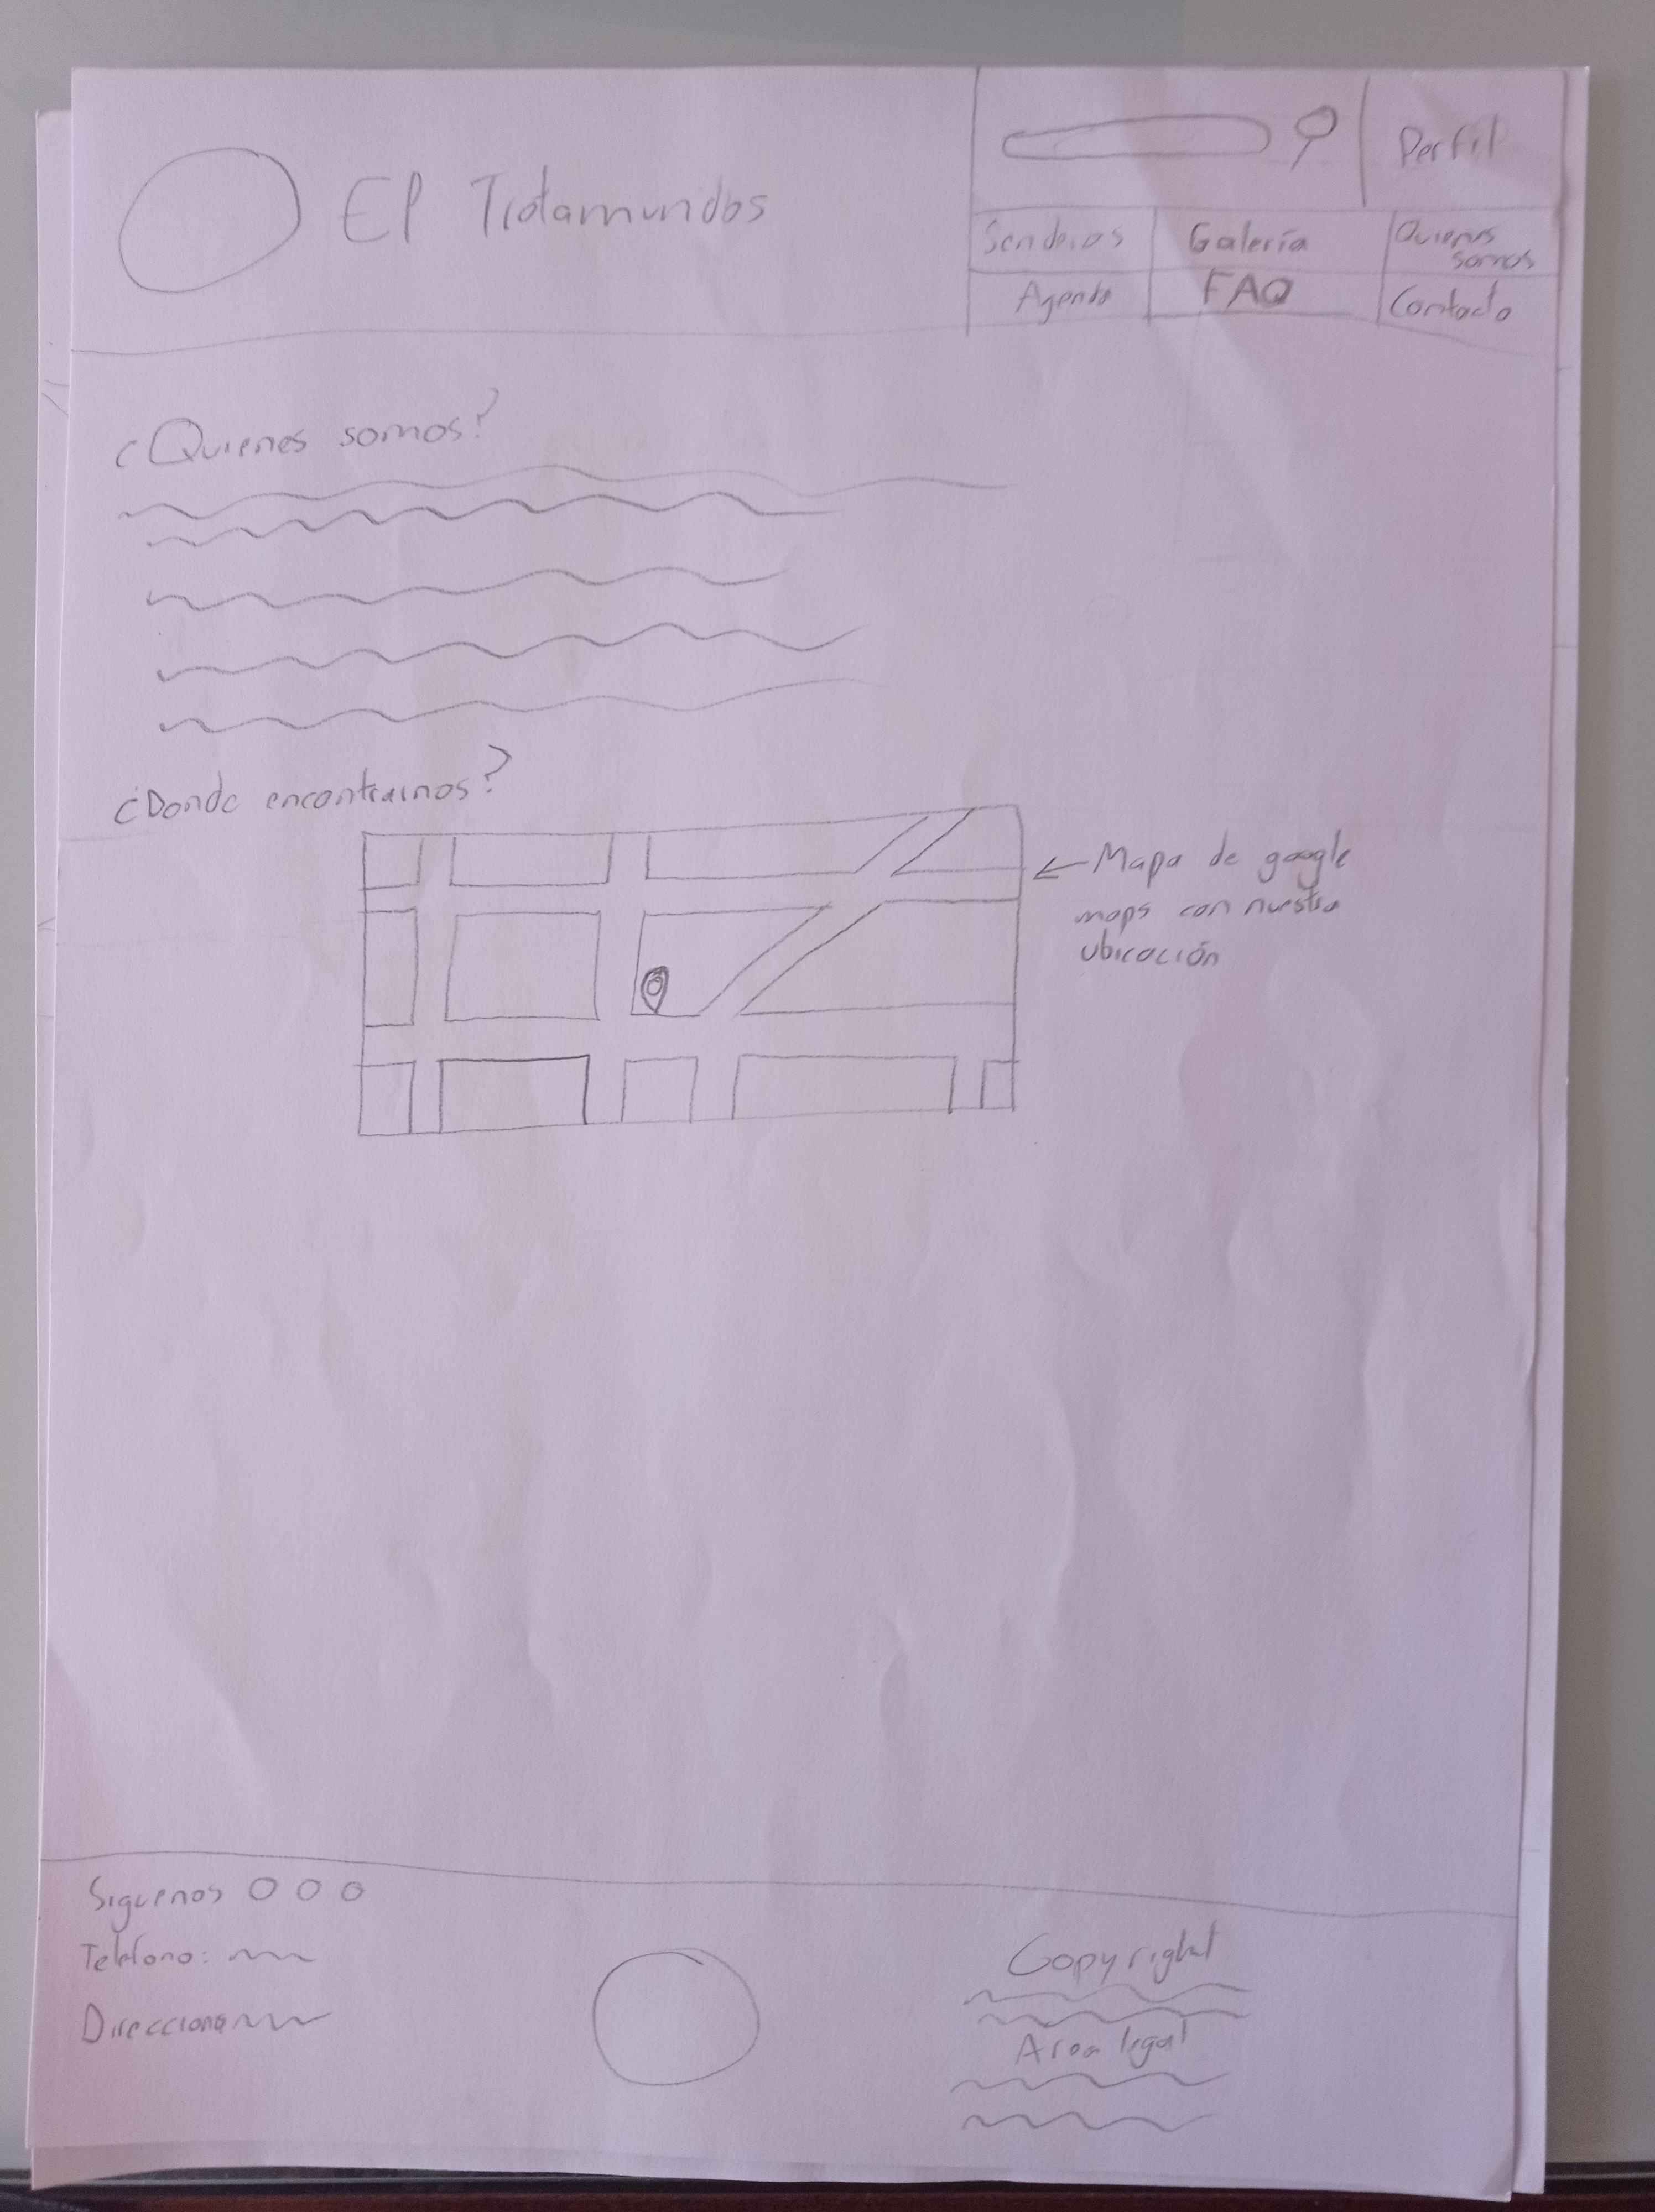 El Trotamundos
Perfil
Senderos
Galería
Quienes
somos
Agenda
FAQ
Contacto
¿Quienes somos?
¿Donde encontrarnos?
Mapa de google
maps con nuestra
ubicación
Siguenos
Telefono:
Direccion:
Copyright
Area legal